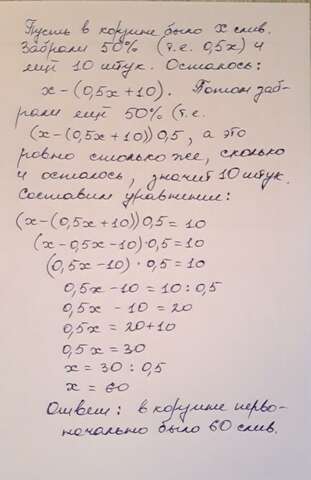 Пусть в корзине было x слив.
Забрали 50% (т.е. 0,5x) и
ещё 10 штук. Осталось:
x-(0,5x+10). Потом заб-
рали ещё 50% (т.е.
(x-(0,5x+10))0,5, а это
ровно столько же, сколько
и осталось, значит 10 штук.
Составим уравнение:
(x-(0,5x+10))0,5=10
(x-0,5x-10)·0,5=10
(0,5x-10)·0,5=10
0,5x-10=10:0,5
0,5x-10=20
0,5x=20+10
0,5x=30
x=30:0,5
x=60
Ответ: в корзине перво-
начально было 60 слив.